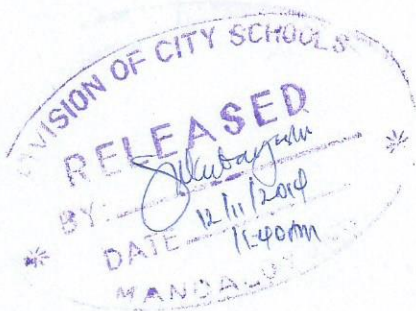 DIVISION OF CITY SCHOOLS
RELEASED
BY:
DATE 12/11/2014
11:40AM
MANDALUY